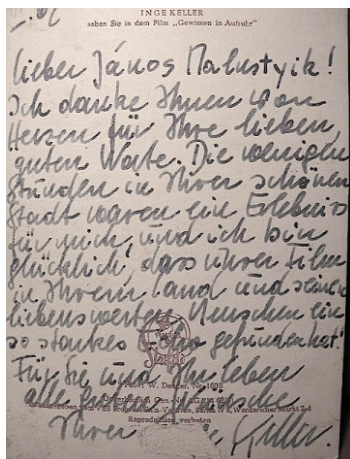 INGE KELLER
sahen Sie in dem Film „Gewissen in Aufruhr"
Lieber János Malustyik!
Ich danke Ihnen von
Herzen für Ihre lieben,
guten Worte. Die wenigen
Stunden in Ihrer schönen
Stadt waren ein Erlebnis
für mich, und ich bin
glücklich, dass unser Film
in Ihrem Land und seinen
liebenswerten Menschen ein
so starkes Echo gefunden hat!
Für Sie und Ihr Leben
Foto: W. Denger, Nr. 1608
alle guten Wünsche
Reproduktion verboten
Ihre